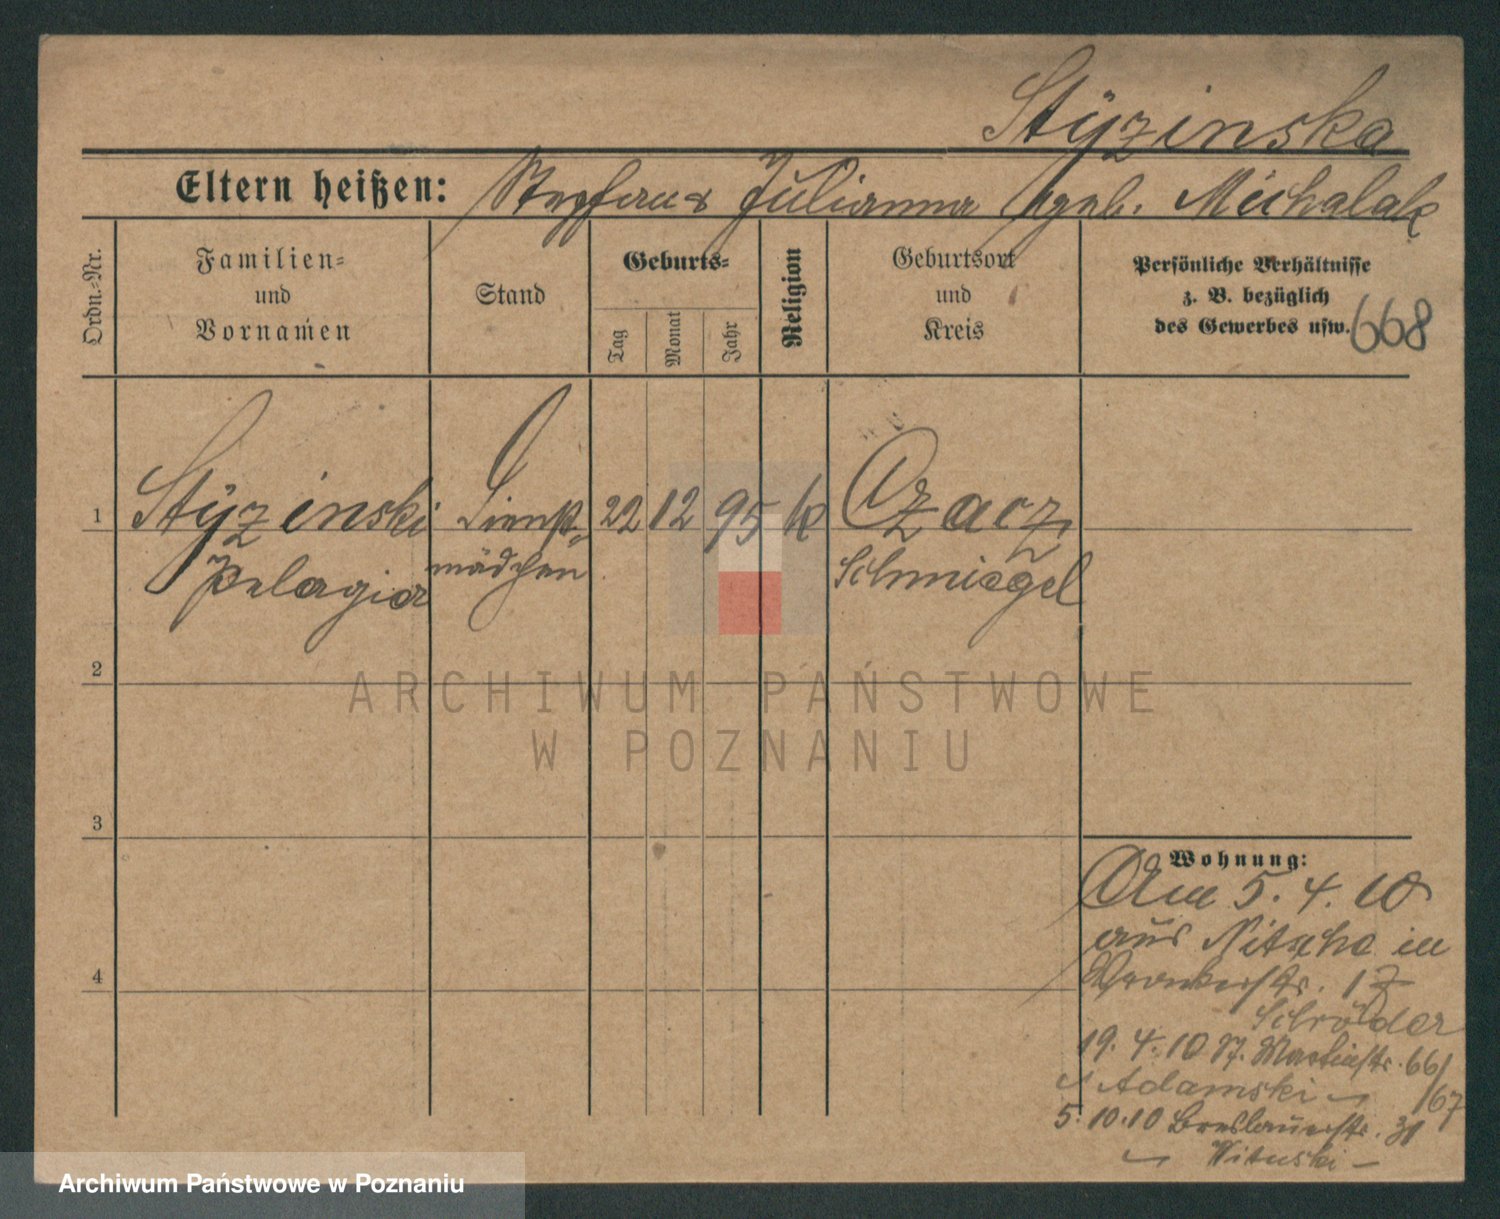 Styzinska
Eltern heißen: Stephan & Julianna geb. Michalak
Ordn.-Nr.
Familien-
und
Vornamen
Stand
Geburts-
Tag
Monat
Jahr
Religion
Geburtsort
und
Kreis
Persönliche Verhältnisse
z. B. bezüglich
des Gewerbes usw.
668
1 Styzinski Dienst- 22 12 95 k Czacz
Pelagia mädchen Schmiegel
2
3
4
Wohnung:
Am 5. 4. 10
aus Nitsche in
Wronkerstr. 17
Schröder
19. 4. 10 Martinstr. 66/67
Adamski
5. 10. 10 Breslauerstr. 31
Wituski
ARCHIWUM PAŃSTWOWE
W POZNANIU
Archiwum Państwowe w Poznaniu